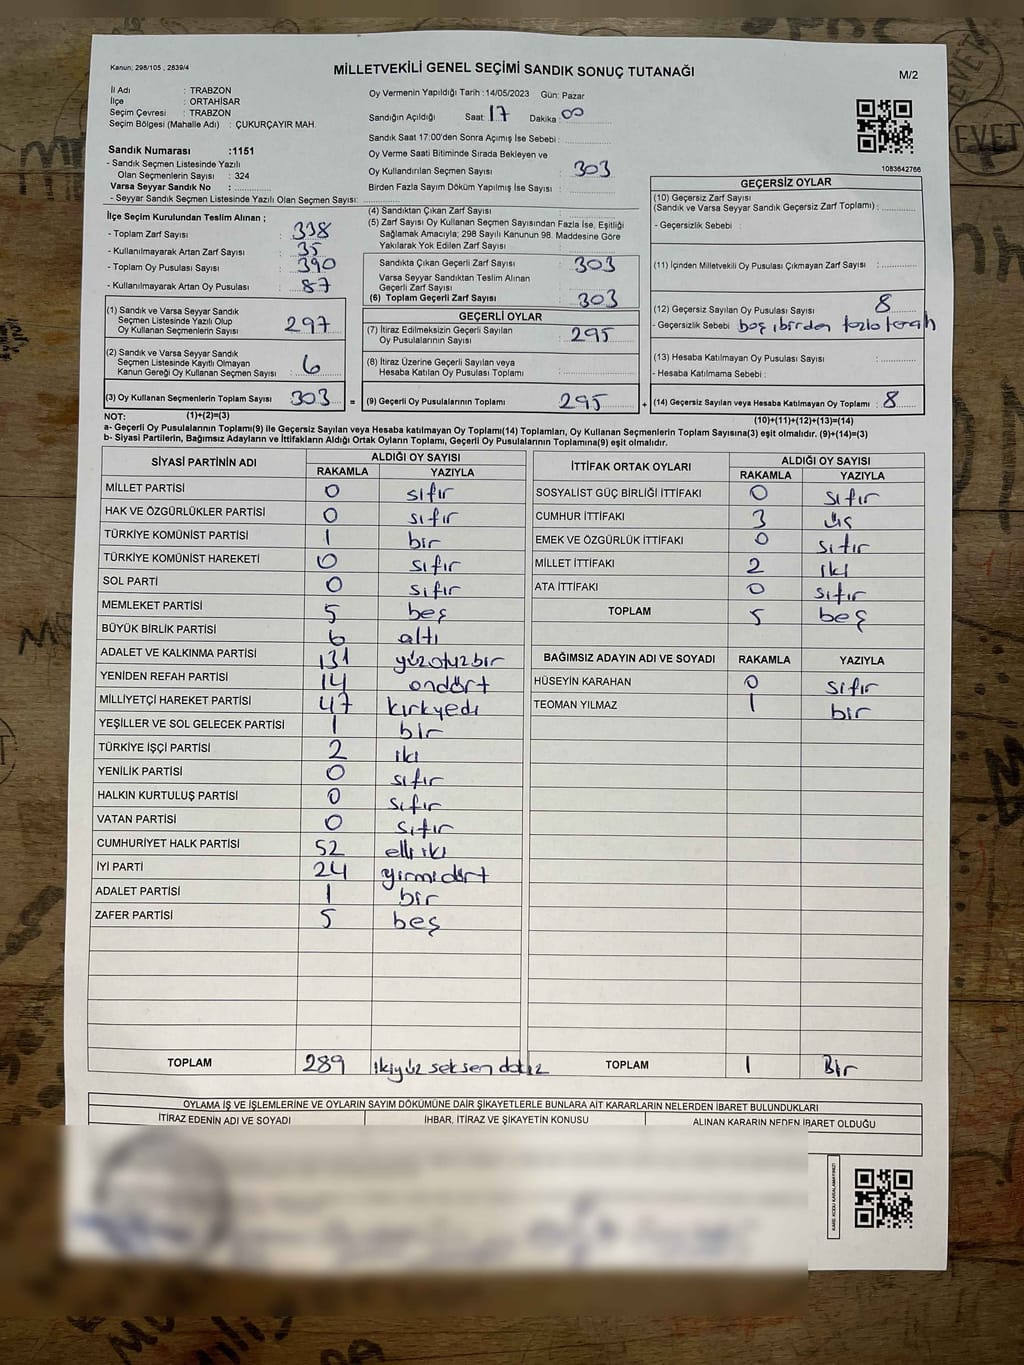 Kanun: 298/105 , 2839/4
MİLLETVEKİLİ GENEL SEÇİMİ SANDIK SONUÇ TUTANAĞI
M/2
İl Adı : TRABZON
İlçe : ORTAHİSAR
Seçim Çevresi : TRABZON
Seçim Bölgesi (Mahalle Adı) : ÇUKURÇAYIR MAH.
Oy Vermenin Yapıldığı Tarih :14/05/2023 Gün: Pazar
Sandığın Açıldığı Saat: 17 Dakika : 00
Sandık Saat 17:00'den Sonra Açımış İse Sebebi :
Oy Verme Saati Bitiminde Sırada Bekleyen ve
Oy Kullandırılan Seçmen Sayısı : 303
Birden Fazla Sayım Döküm Yapılmış İse Sayısı :
1083642766
Sandık Numarası :1151
- Sandık Seçmen Listesinde Yazılı
Olan Seçmenlerin Sayısı : 324
Varsa Seyyar Sandık No :
- Seyyar Sandık Seçmen Listesinde Yazılı Olan Seçmen Sayısı:
İlçe Seçim Kurulundan Teslim Alınan ;
- Toplam Zarf Sayısı : 338
- Kullanılmayarak Artan Zarf Sayısı : 35
- Toplam Oy Pusulası Sayısı : 390
- Kullanılmayarak Artan Oy Pusulası : 87
(1) Sandık ve Varsa Seyyar Sandık
Seçmen Listesinde Yazılı Olup
Oy Kullanan Seçmenlerin Sayısı : 297
(2) Sandık ve Varsa Seyyar Sandık
Seçmen Listesinde Kayıtlı Olmayan
Kanun Gereği Oy Kullanan Seçmen Sayısı : 6
(3) Oy Kullanan Seçmenlerin Toplam Sayısı : 303
(4) Sandıktan Çıkan Zarf Sayısı :
(5) Zarf Sayısı Oy Kullanan Seçmen Sayısından Fazla İse, Eşitliği
Sağlamak Amacıyla; 298 Sayılı Kanunun 98. Maddesine Göre
Yakılarak Yok Edilen Zarf Sayısı :
Sandıkta Çıkan Geçerli Zarf Sayısı : 303
Varsa Seyyar Sandıktan Teslim Alınan
Geçerli Zarf Sayısı :
(6) Toplam Geçerli Zarf Sayısı : 303
GEÇERLİ OYLAR
(7) İtiraz Edilmeksizin Geçerli Sayılan
Oy Pusulalarının Sayısı : 295
(8) İtiraz Üzerine Geçerli Sayılan veya
Hesaba Katılan Oy Pusulası Toplamı :
= (9) Geçerli Oy Pusulalarının Toplamı : 295
GEÇERSİZ OYLAR
(10) Geçersiz Zarf Sayısı
(Sandık ve Varsa Seyyar Sandık Geçersiz Zarf Toplamı) :
- Geçersizlik Sebebi :
(11) İçinden Milletvekili Oy Pusulası Çıkmayan Zarf Sayısı :
(12) Geçersiz Sayılan Oy Pusulası Sayısı : 8
- Geçersizlik Sebebi : boş, birden fazla tercih
(13) Hesaba Katılmayan Oy Pusulası Sayısı :
- Hesaba Katılmama Sebebi :
+ (14) Geçersiz Sayılan veya Hesaba Katılmayan Oy Toplamı : 8
NOT: (1)+(2)=(3)
(10)+(11)+(12)+(13)=(14)
a- Geçerli Oy Pusulalarının Toplamı(9) ile Geçersiz Sayılan veya Hesaba katılmayan Oy Toplamı(14) Toplamları, Oy Kullanan Seçmenlerin Toplam Sayısına(3) eşit olmalıdır. (9)+(14)=(3)
b- Siyasi Partilerin, Bağımsız Adayların ve İttifakların Aldığı Ortak Oyların Toplamı, Geçerli Oy Pusulalarının Toplamına(9) eşit olmalıdır.
SİYASİ PARTİNİN ADI ALDIĞI OY SAYISI
RAKAMLA YAZIYLA
MİLLET PARTİSİ 0 sıfır
HAK VE ÖZGÜRLÜKLER PARTİSİ 0 sıfır
TÜRKİYE KOMÜNİST PARTİSİ 1 bir
TÜRKİYE KOMÜNİST HAREKETİ 0 sıfır
SOL PARTİ 0 sıfır
MEMLEKET PARTİSİ 5 beş
BÜYÜK BİRLİK PARTİSİ 6 altı
ADALET VE KALKINMA PARTİSİ 131 yüzotuzbir
YENİDEN REFAH PARTİSİ 14 ondört
MİLLİYETÇİ HAREKET PARTİSİ 47 kırkyedi
YEŞİLLER VE SOL GELECEK PARTİSİ 1 bir
TÜRKİYE İŞÇİ PARTİSİ 2 iki
YENİLİK PARTİSİ 0 sıfır
HALKIN KURTULUŞ PARTİSİ 0 sıfır
VATAN PARTİSİ 0 sıfır
CUMHURİYET HALK PARTİSİ 52 elli iki
İYİ PARTİ 24 yirmidört
ADALET PARTİSİ 1 bir
ZAFER PARTİSİ 5 beş
TOPLAM 289 ikiyüz seksen dokuz
İTTİFAK ORTAK OYLARI ALDIĞI OY SAYISI
RAKAMLA YAZIYLA
SOSYALİST GÜÇ BİRLİĞİ İTTİFAKI 0 sıfır
CUMHUR İTTİFAKI 3 üç
EMEK VE ÖZGÜRLÜK İTTİFAKI 0 sıfır
MİLLET İTTİFAKI 2 iki
ATA İTTİFAKI 0 sıfır
TOPLAM 5 beş
BAĞIMSIZ ADAYIN ADI VE SOYADI RAKAMLA YAZIYLA
HÜSEYİN KARAHAN 0 sıfır
TEOMAN YILMAZ 1 bir
TOPLAM 1 Bir
OYLAMA İŞ VE İŞLEMLERİNE VE OYLARIN SAYIM DÖKÜMÜNE DAİR ŞİKAYETLERLE BUNLARA AİT KARARLARIN NELERDEN İBARET BULUNDUKLARI
İTİRAZ EDENİN ADI VE SOYADI İHBAR, İTİRAZ VE ŞİKAYETİN KONUSU ALINAN KARARIN NEDEN İBARET OLDUĞU
KARE KODU KARALAMAYINIZ!
EVET